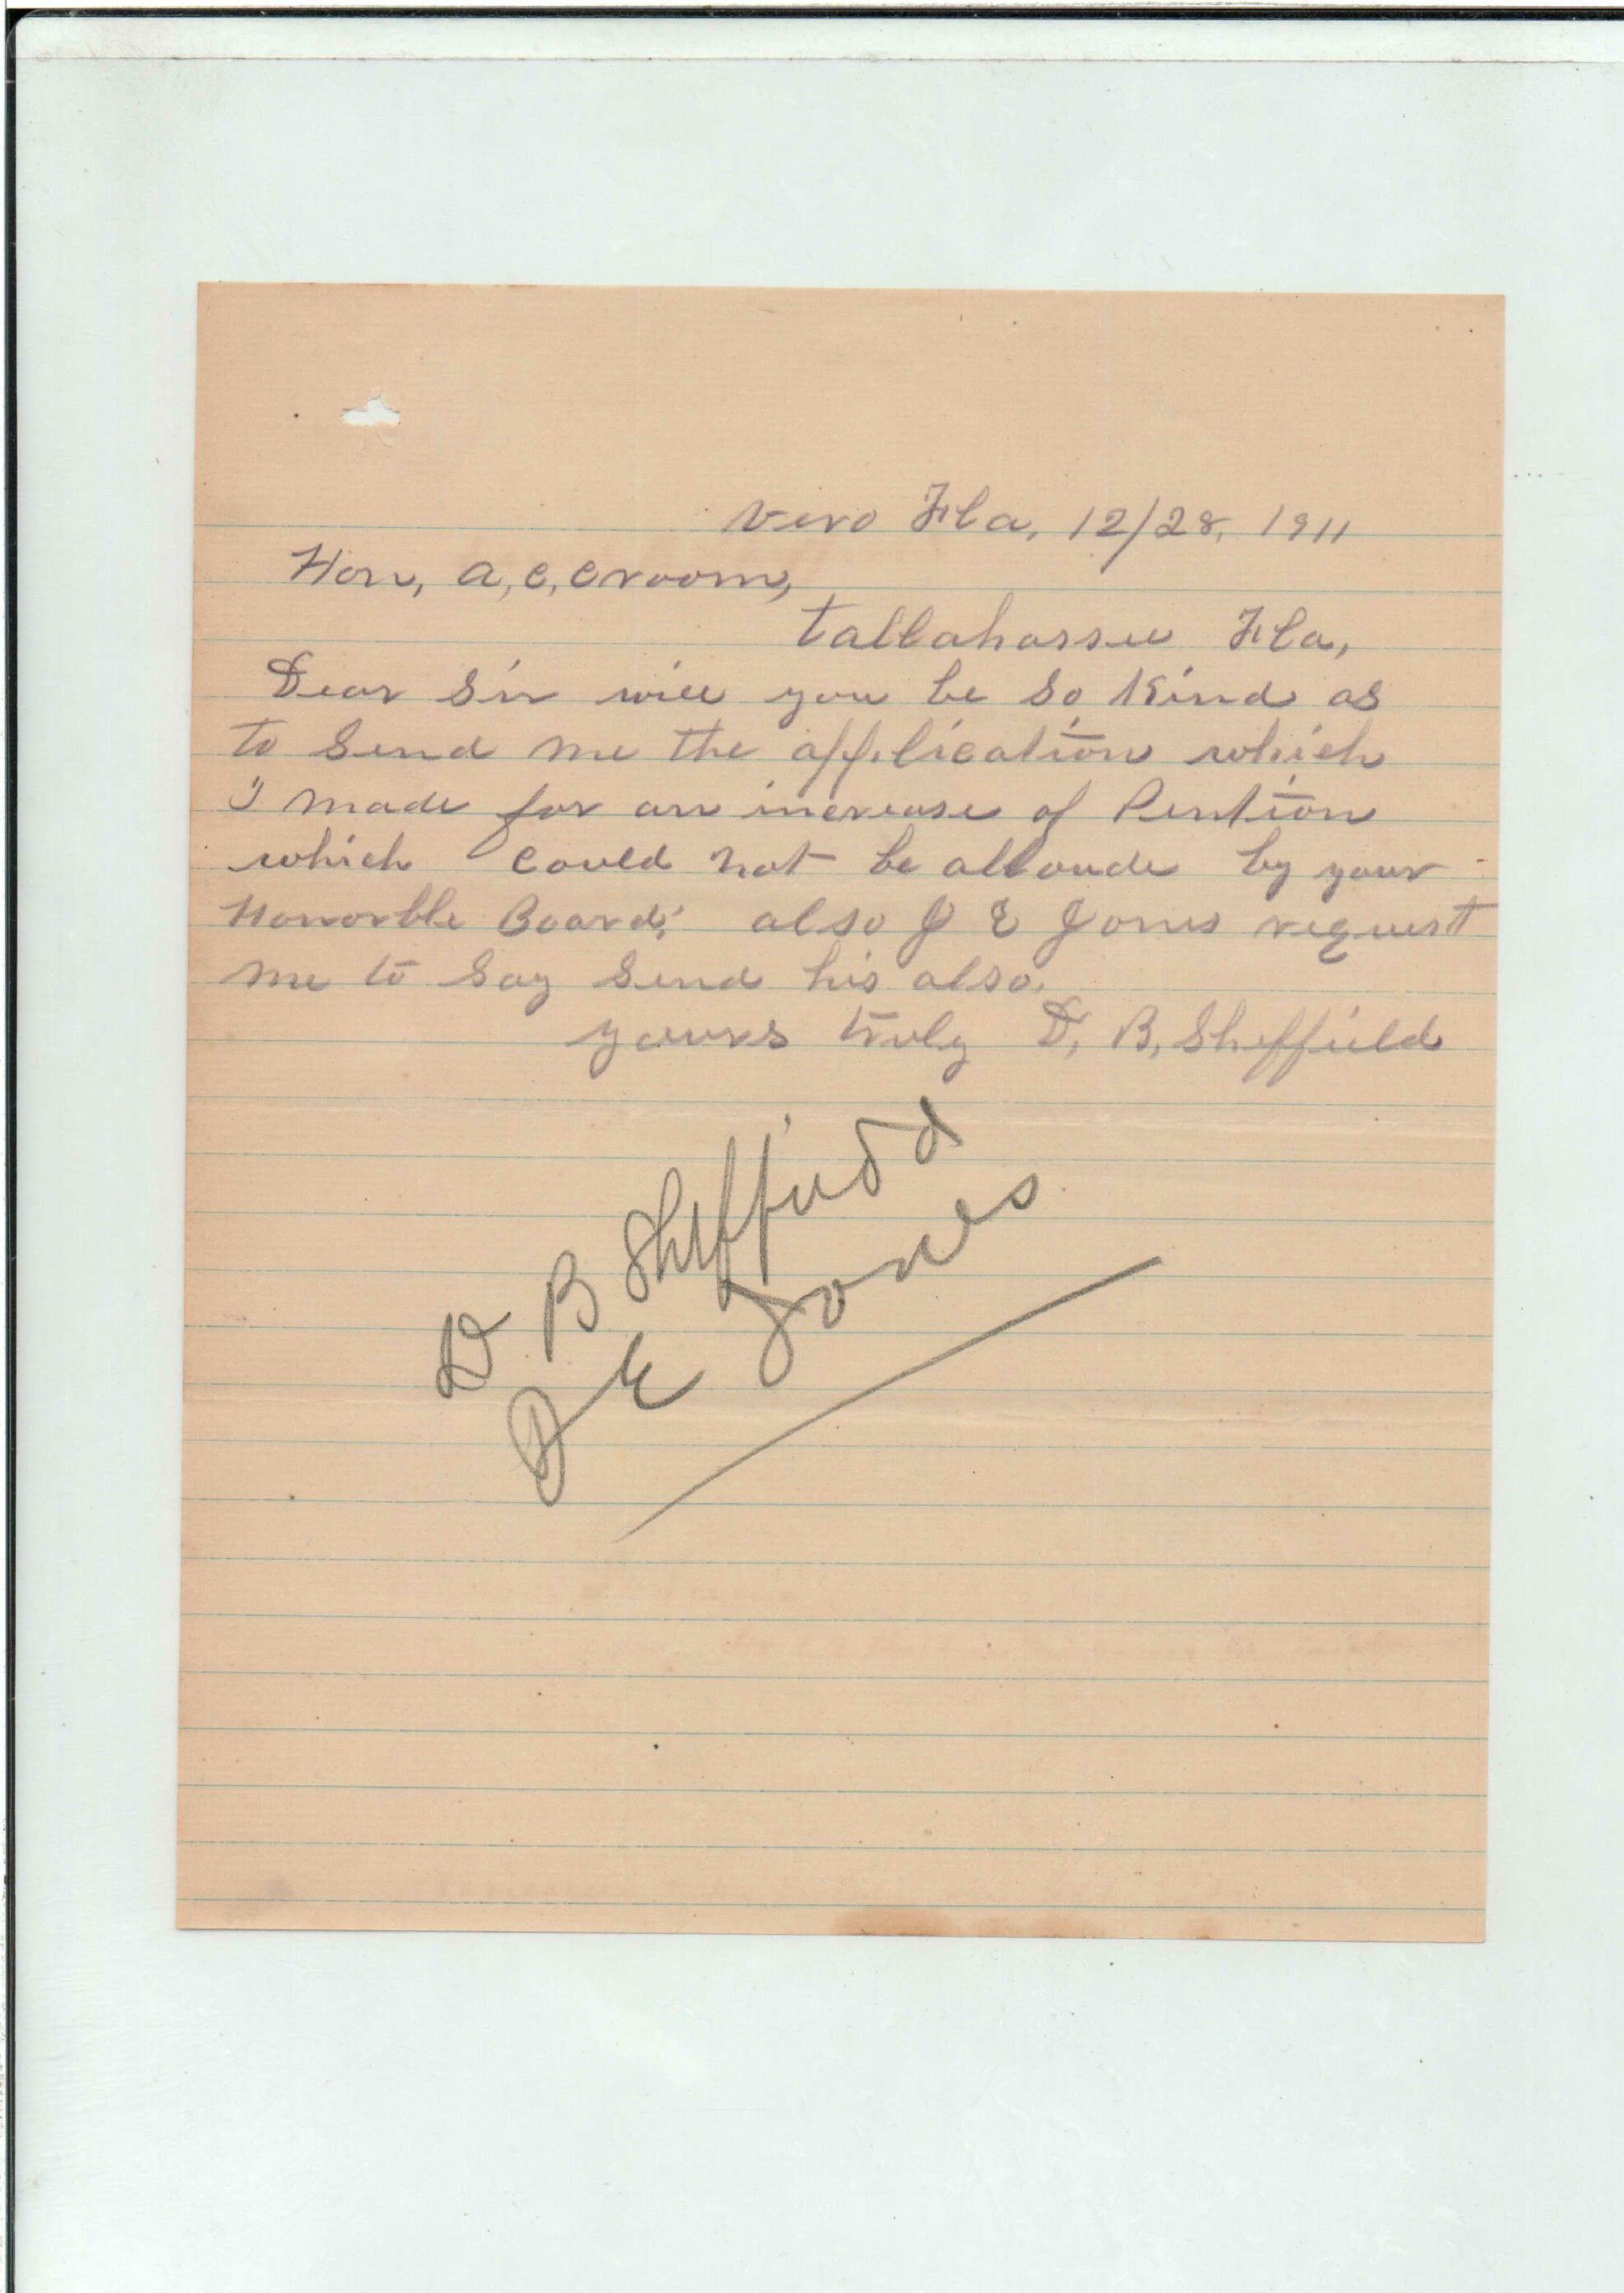 Vero Fla, 12/28, 1911
Hon, A, C, Croom,
Tallahassee Fla,
Dear Sir will you be so Kind as
to Send me the application which
I made for an increase of Pention
which could not be alloude by your
Honorble Board; also J E Jones request
me to Say Send his also.
yours truly D, B, Sheffield
D B Sheffield
J E Jones